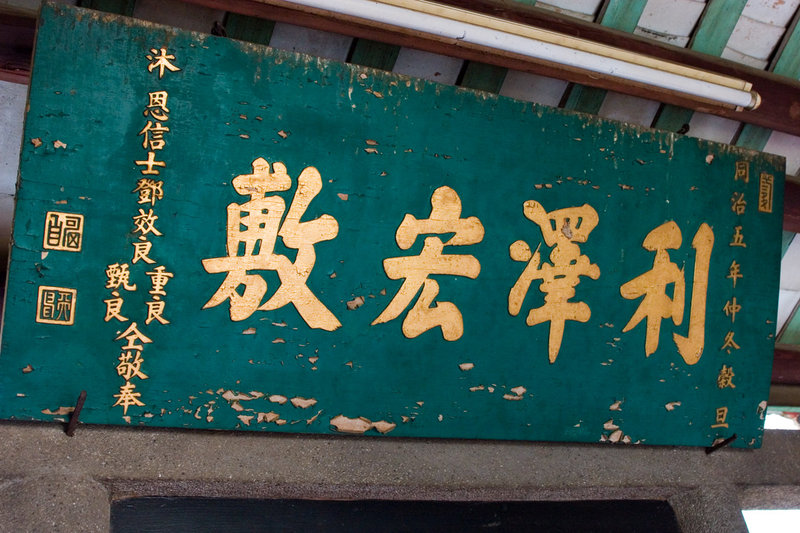 同治五年仲冬穀旦
利澤宏敷
沐恩信士鄧效良重良
甄良仝敬奉